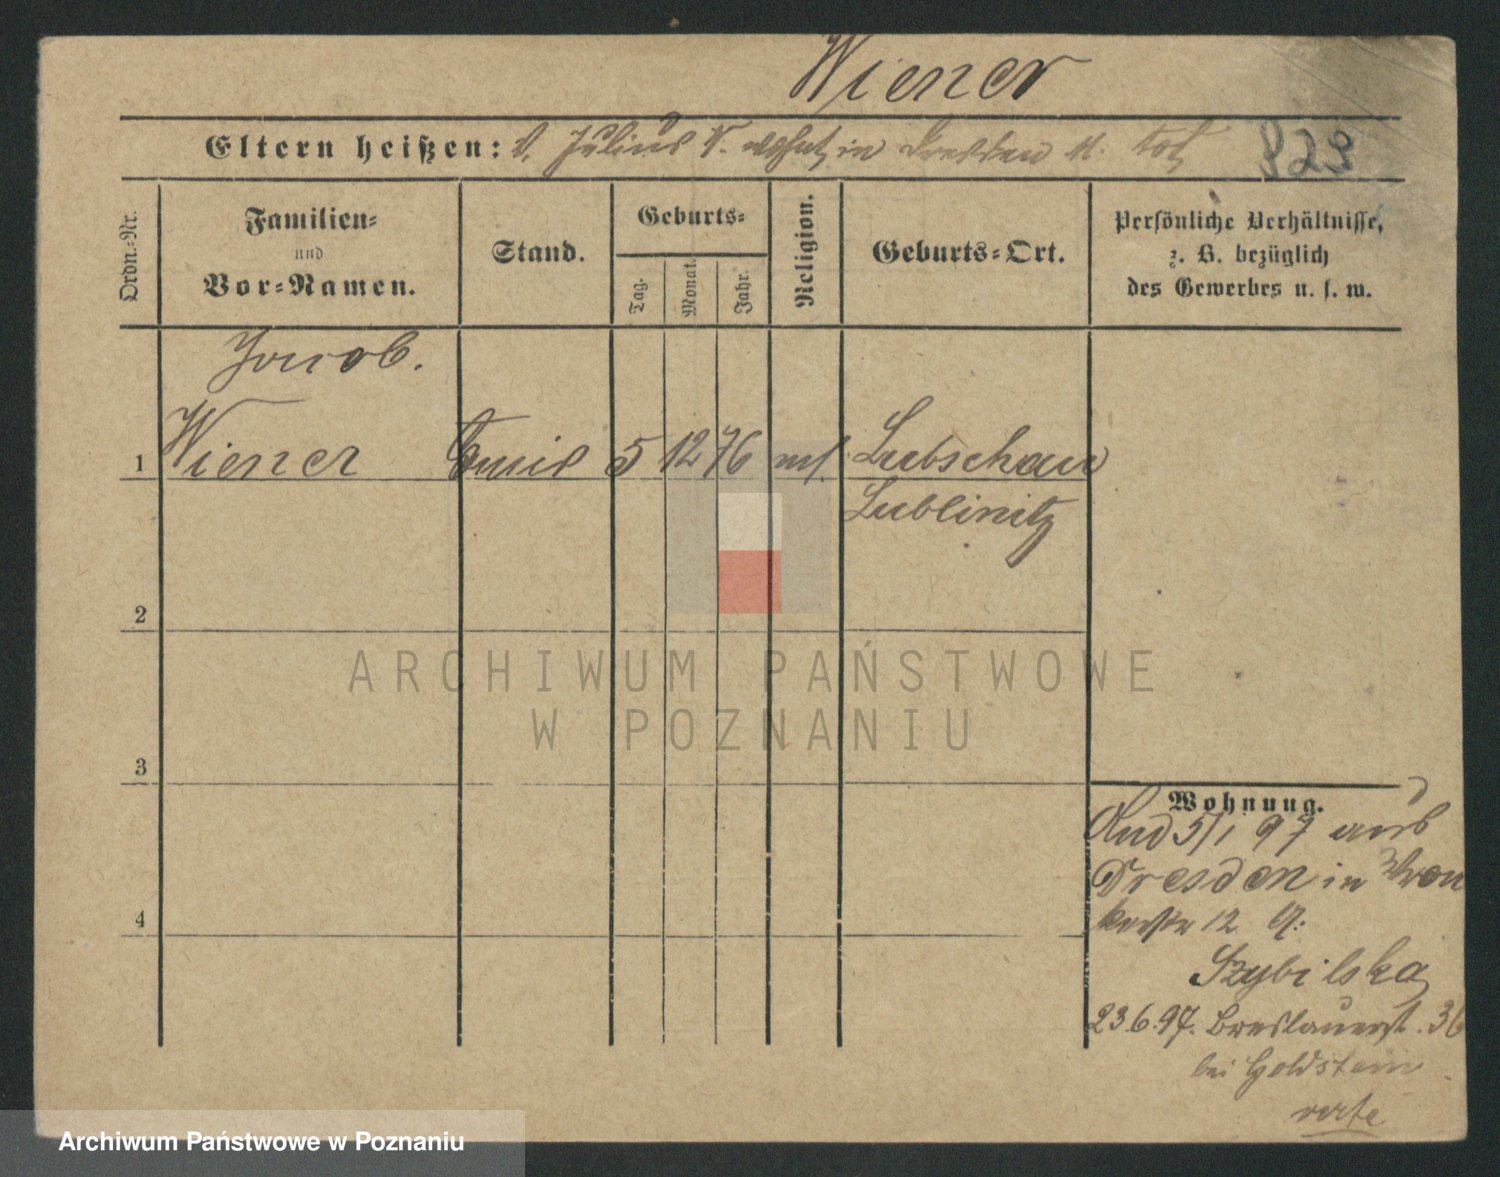 Wiener
Eltern heißen: V. Julius V. wohnt in Dresden M. tot
Ordn.-Nr.
Familien-
und
Vor-Namen.
Stand.
Geburts-
Tag.
Monat.
Jahr.
Religion.
Geburts-Ort.
Persönliche Verhältnisse,
z. B. bezüglich
des Gewerbes u. s. w.
Jacob.
1 Wiener Emil 5 12 76 Lubschau
Lublinitz
2
3
4
Wohnung.
5/1 97 aus
Dresden in Wron
kerstr 12 b.
Szybilska
23.6.97. Breslauerst. 36
bei Goldstein
verte
ARCHIWUM PAŃSTWOWE
W POZNANIU
Archiwum Państwowe w Poznaniu